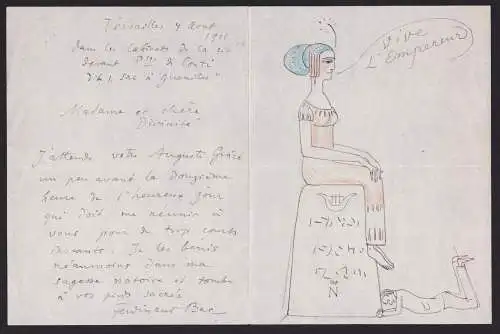 Versailles 4 Août
1911
dans les Cabinets de la
devant de Conti
dit, sac à Grenailles
Madame et chère
Divinité
J'attends votre Auguste Grâce
un peu avant la douzième
heure de l'heureux jour
qui doit me réunir à
vous pour de trop courts
instants. Je les bénis
néanmoins dans ma
sagesse notoire et tombe
à vos pieds sacrés
Ferdinand Bac
Vive
L'Empereur
N